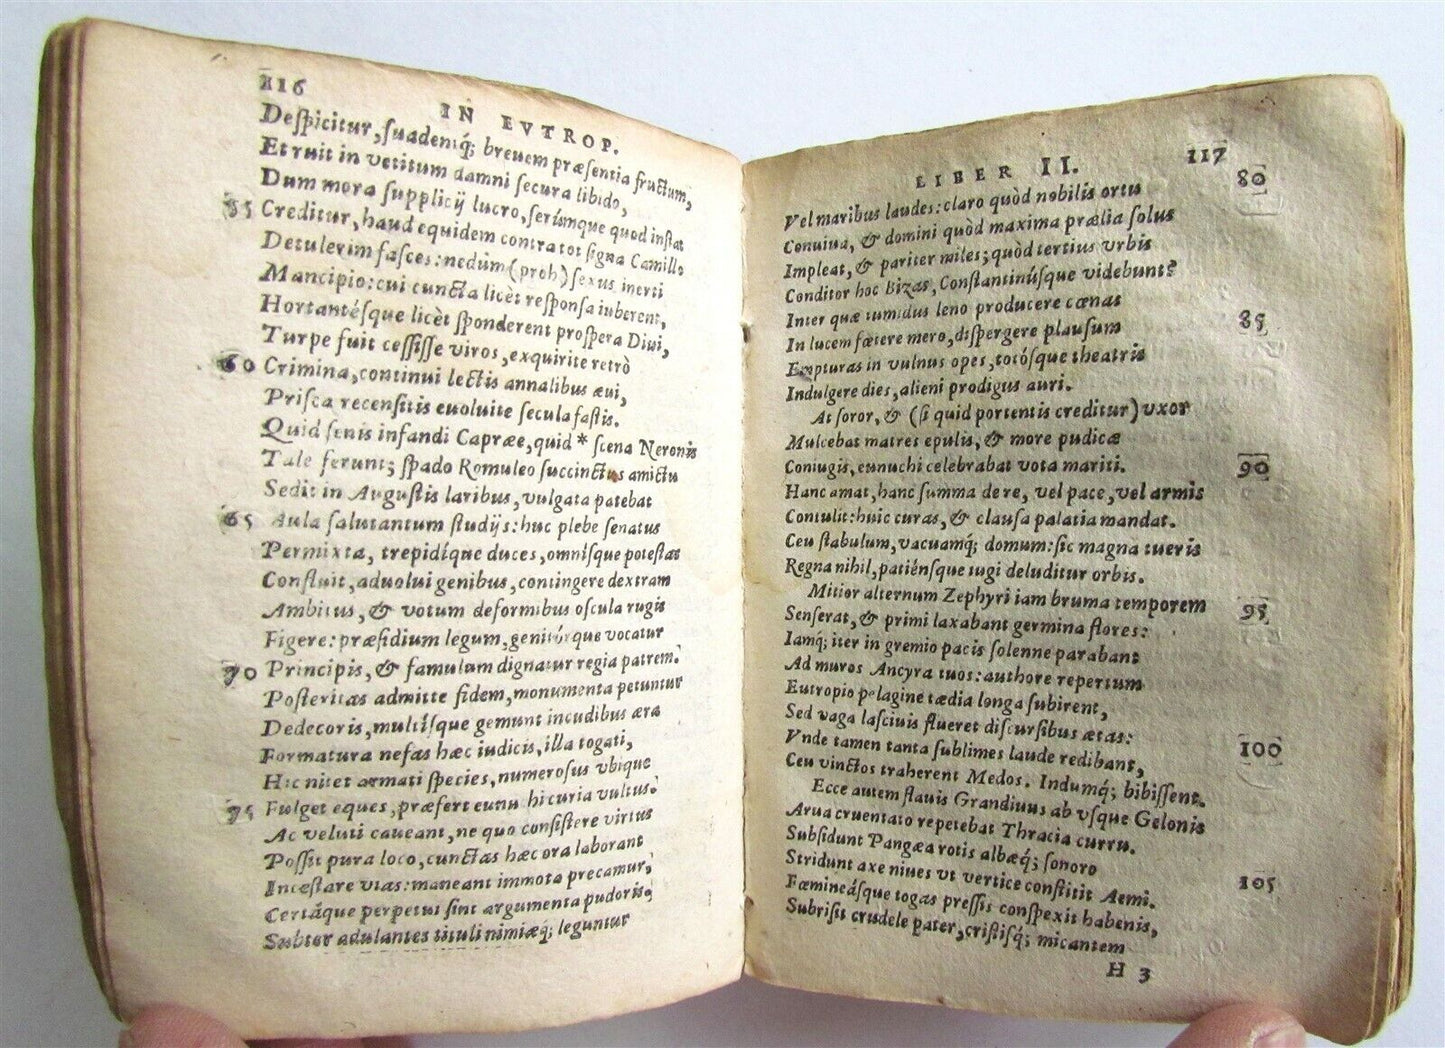 116
IN EVTROP.
Despicitur, suadentq́; breuem præsentia fructum,
Et ruit in vetitum damni secura libido,
Dum mora supplicij lucro, serúmque quod instat
55 Creditur, haud equidem contra tot signa Camillo
Detulerim fasces: nedùm (proh) sexus inerti
Mancipio: cui cuncta licèt responsa iuberent,
Hortantésque licèt sponderent prospera Diui,
Turpe fuit cessisse viros, exquirite retrò
60 Crimina, continui lectis annalibus æui,
Prisca recensitis euoluite secula fastis.
Quid senis infandi Capræe, quid * scena Neronis
Tale ferunt; spado Romuleo succinctus amictu
Sedit in Augustis laribus, vulgata patebat
65 Aula salutantum studijs: huc plebe senatus
Permixta, trepidíque duces, omnísque potestas
Confluit, aduolui genibus, contingere dextram
Ambitus, & votum deformibus oscula rugis
Figere: præsidium legum, genitórque vocatur
70 Principis, & famulum dignatur regia patrem.
Posteritas admitte fidem, monumenta petuntur
Dedecoris, multísque gemunt incudibus æra
Formatura nefas hæc iudicis, illa togati,
Hic nitet armati species, numerosus vbique
75 Fulget eques, præfert eunuchi curia vultus.
Ac veluti caueant, ne quo consistere virtus
Possit pura loco, cunctas hæc ora laborant
Incæstare vias: maneant immota precamur,
Certáque perpetui sint argumenta pudoris.
Subter adulantes tituli nimiæq́; leguntur
LIBER II. 117
80
Vel maribus laudes: claro quòd nobilis ortu
Conuiua, & domini quòd maxima prælia solus
Impleat, & pariter miles; quòd tertius vrbis
Conditor hoc Bizas, Constantinúsque videbunt?
Inter quæ tumidus leno producere cœnas 85
In lucem fœtere mero, dispergere plausum
Empturas in vulnus opes, totósque theatris
Indulgere dies, alieni prodigus auri.
At soror, & (si quid portentis creditur) vxor
Mulcebat matres epulis, & more pudicæ
Coniugis, eunuchi celebrabat vota mariti. 90
Hanc amat, hanc summa de re, vel pace, vel armis
Consulit: huic curas, & clausa palatia mandat.
Ceu stabulum, vacuamq́; domum: sic magna tueris
Regna nihil, patiénsque iugi deluditur orbis.
Mitior alternum Zephyri iam bruma temporem 95
Senserat, & primi laxabant germina flores:
Iamq́; iter in gremio pacis solenne parabant
Ad muros Ancyra tuos: authore repertum
Eutropio pelagi ne tædia longa subirent,
Sed vaga lasciuis flueret discursibus ætas:
Vnde tamen tanta sublimes laude redibant, 100
Ceu vinctos traherent Medos. Indumq́; bibissent.
Ecce autem flauis Grandiuus ab vsque Gelonis
Arua cruentato repetebat Thracia curru.
Subsidunt Pangæa rotis albæq́; sonoro
Stridunt axe niues vt vertice constitit Aemi. 105
Fœmineásque togas pressis conspexit habenis,
Subrisit crudele pater, cristísq́; micantem
H 3